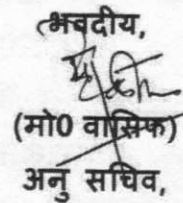 भवदीय,
(मो0 वासिफ)
अनु सचिव,